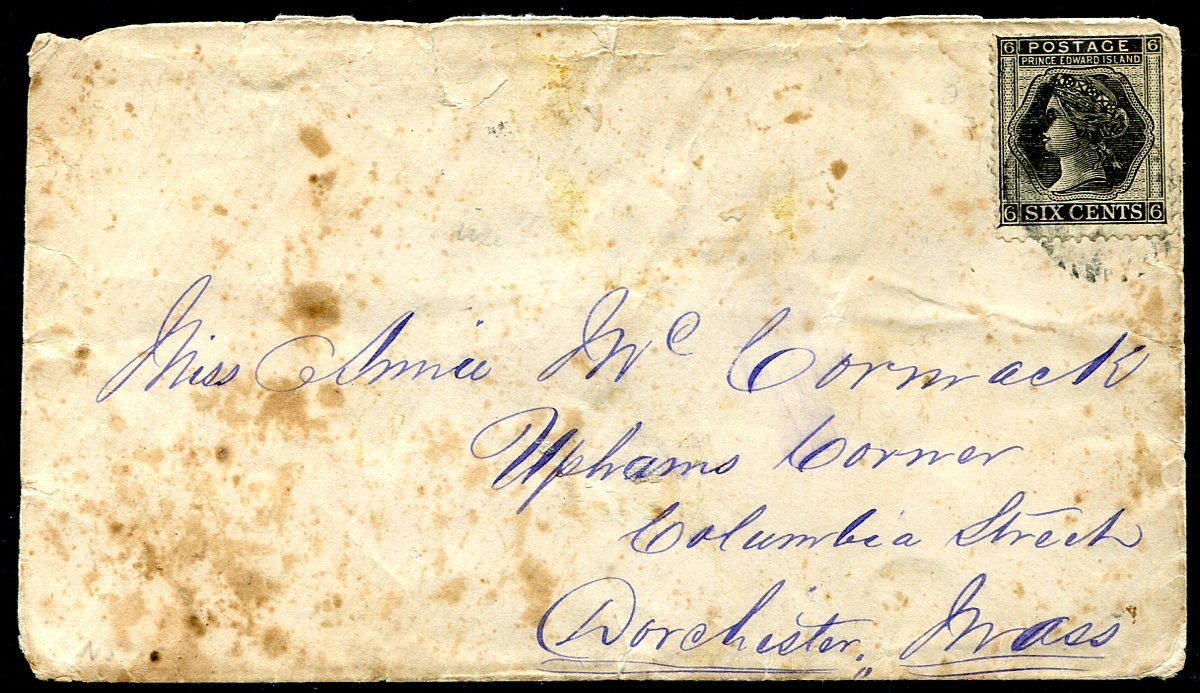 6 POSTAGE 6
PRINCE EDWARD ISLAND
6 SIX CENTS 6
Miss Annie McCormack
Uphams Corner
Columbia Street
Dorchester, Mass